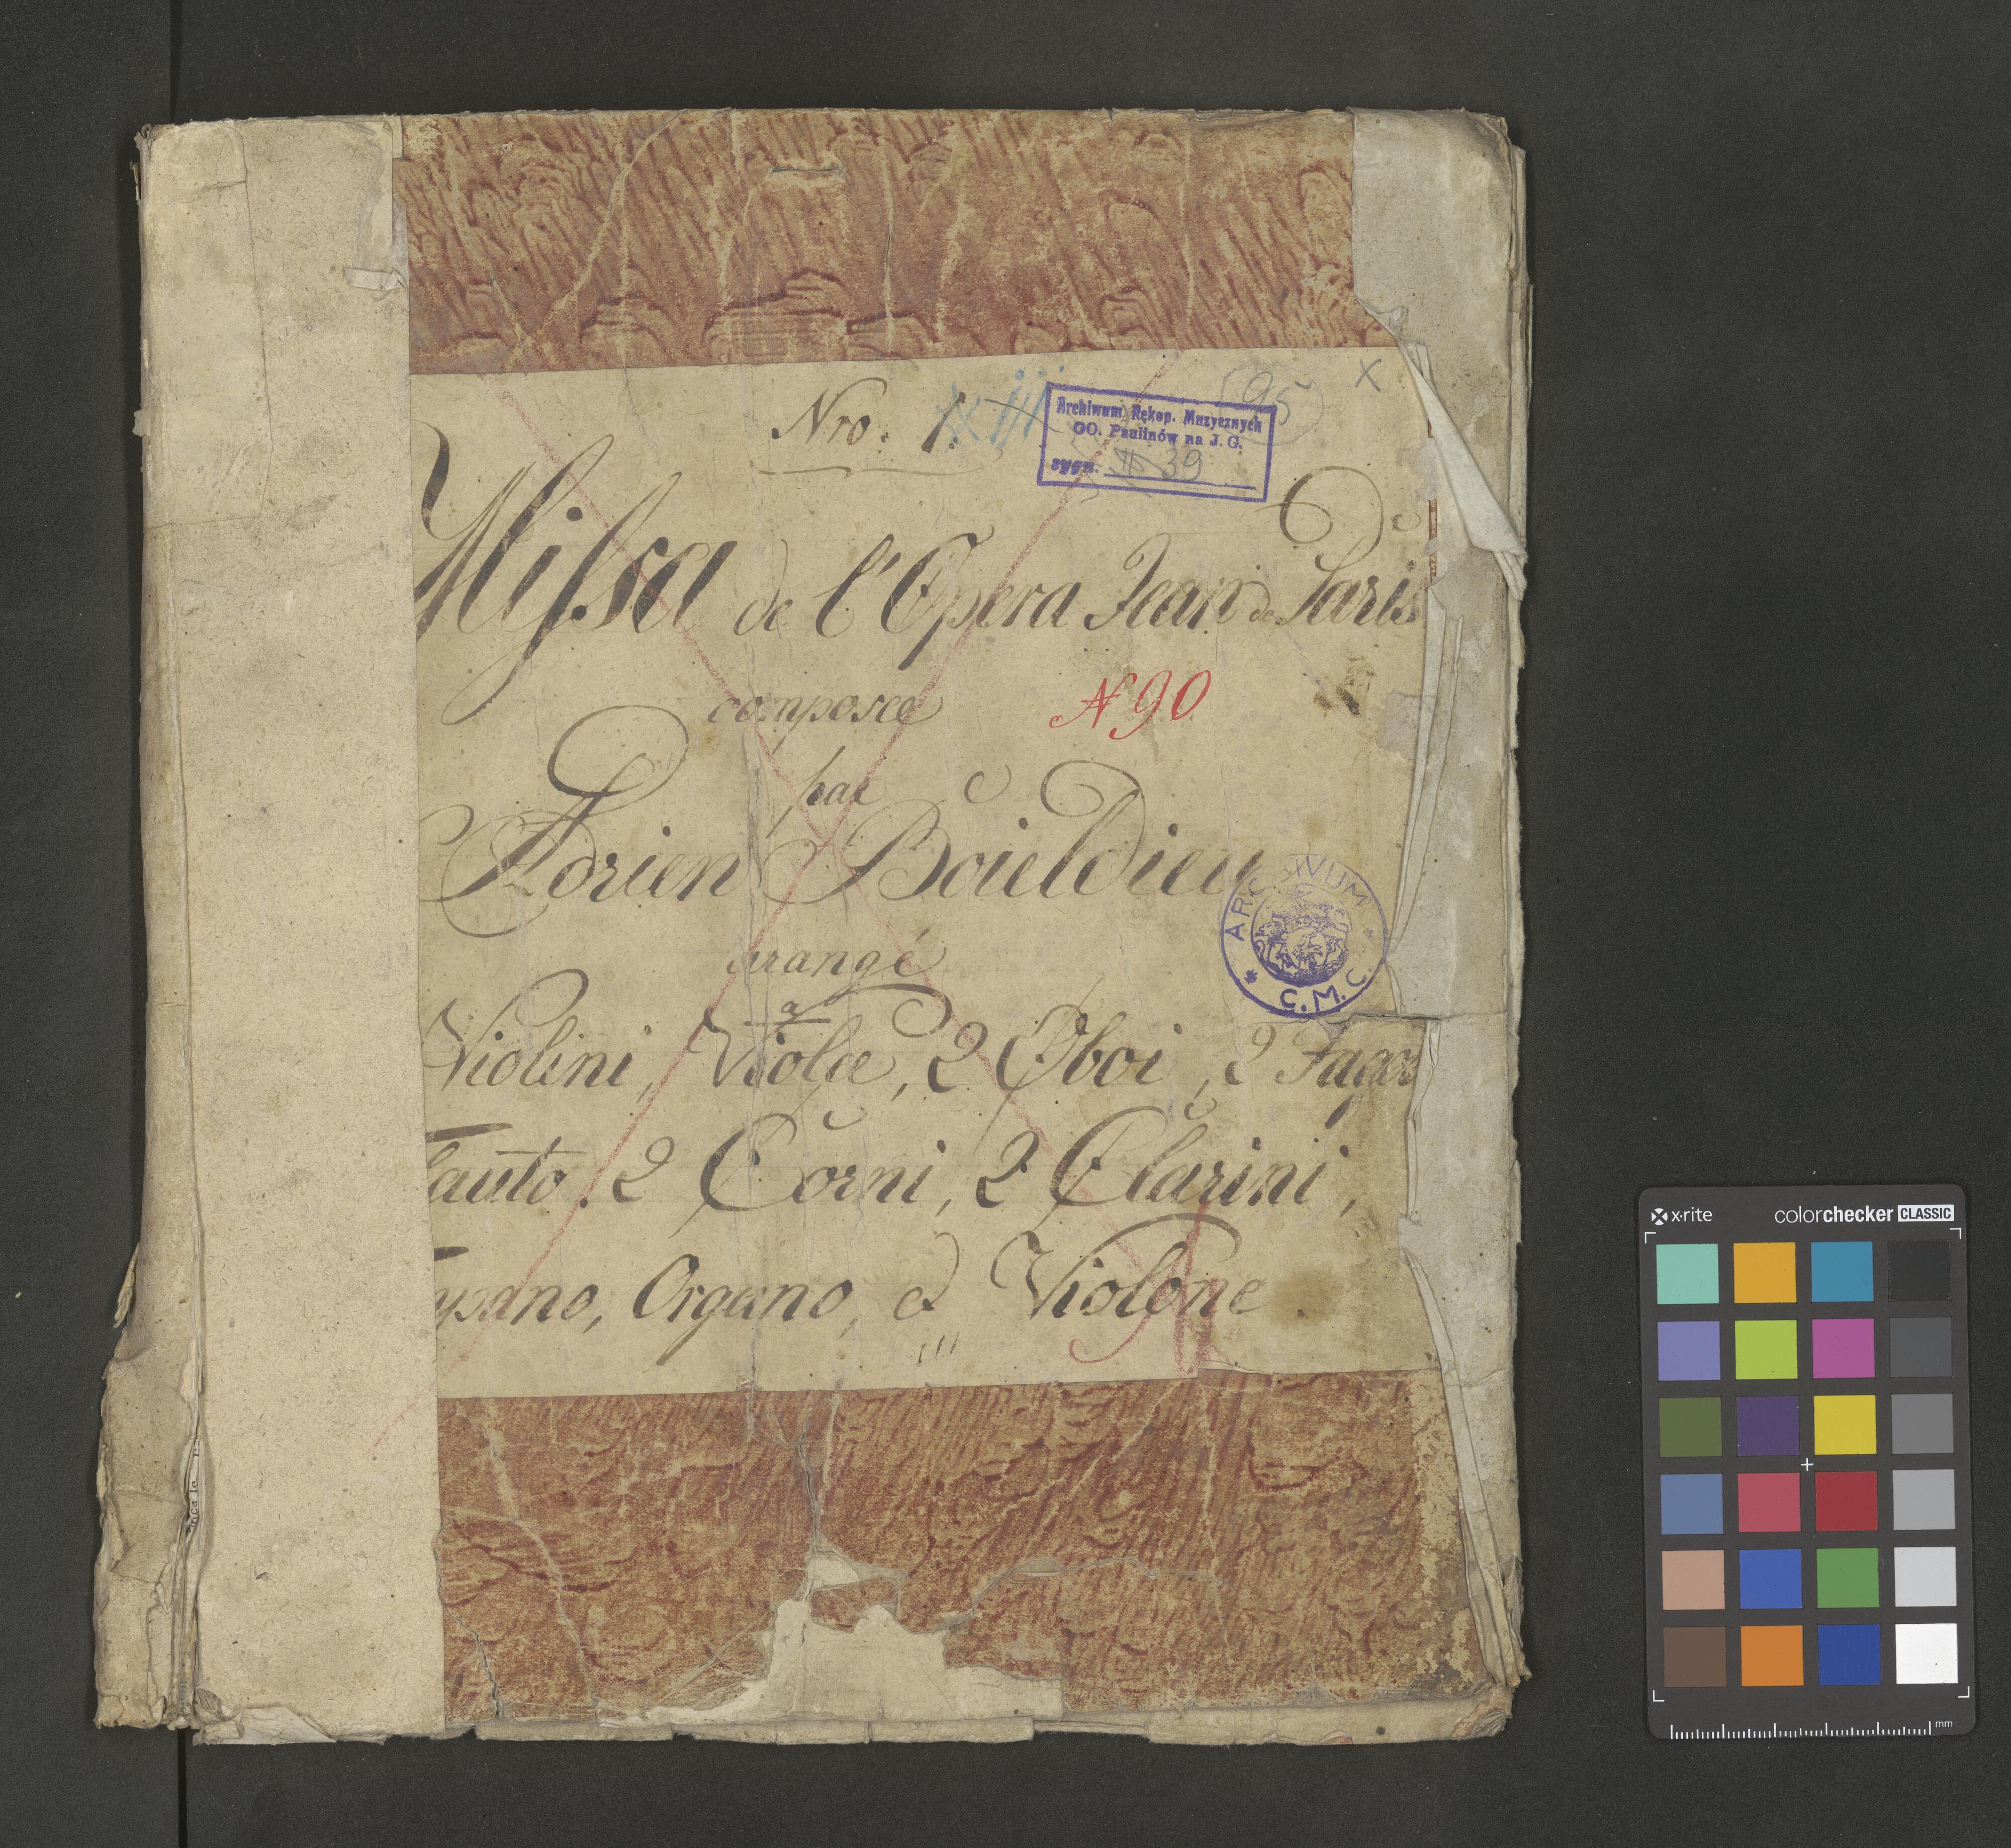 Nro. 1.
95
x
Archiwum Rękop. Muzycznych
OO. Paulinów na J. G.
sygn. 39
Missa de l'Opera Jean de Paris
composee
N 90
par
Adrien Boieldieu
ARCHIVUM
C.M.C.
arangé
a
Violini, Violae, 2 Oboi, 2 Fagot
lauto. 2 Corni, 2 Clarini,
ypano, Organo, et Violone.
ncale
x·rite
colorchecker CLASSIC
mm